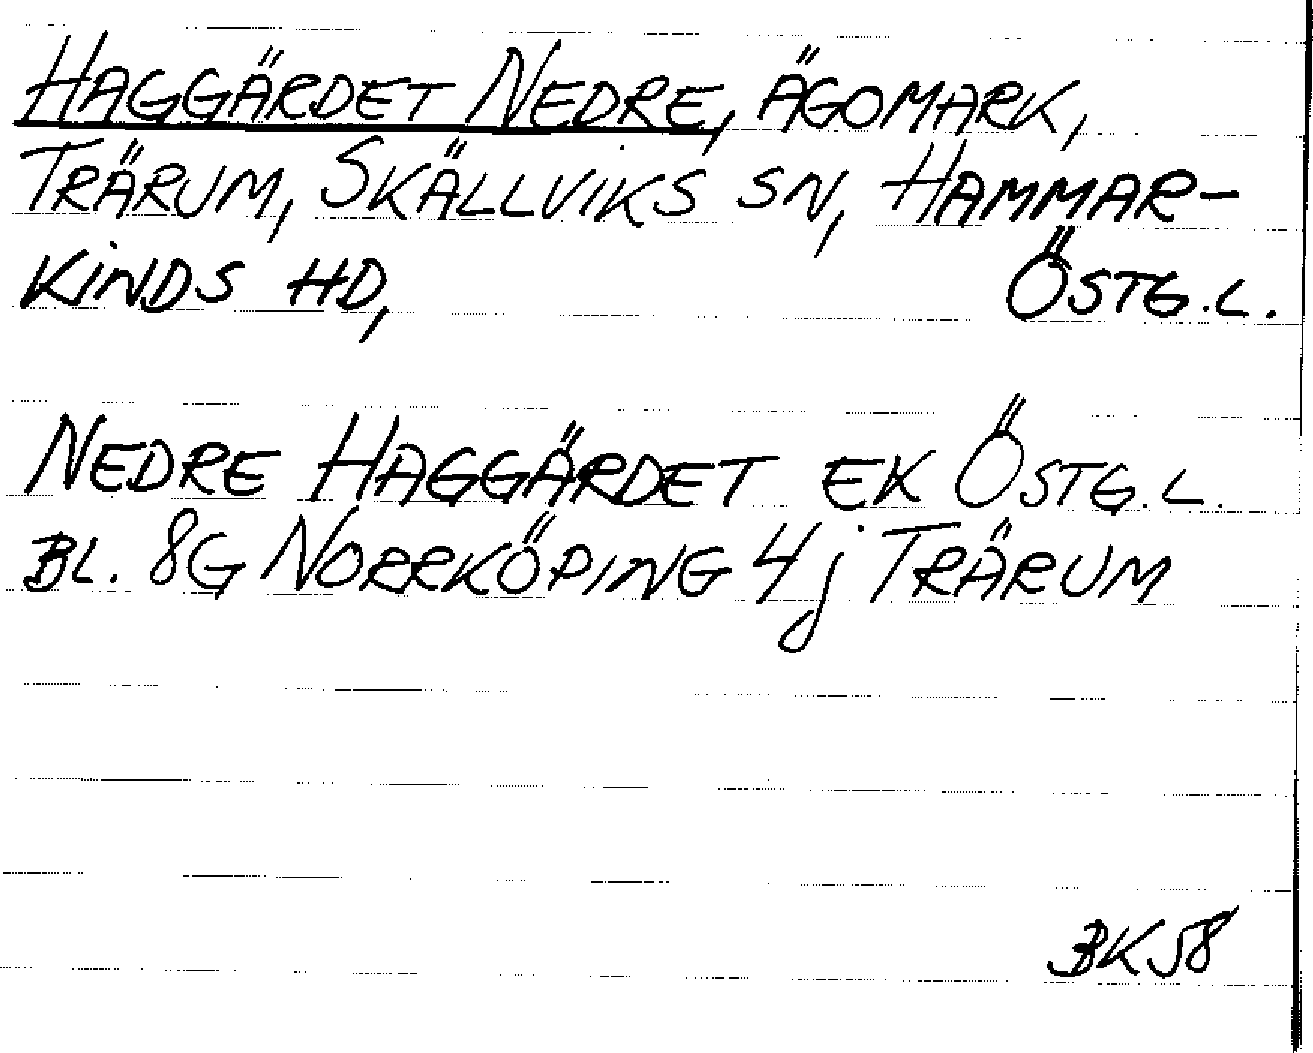 HAGGÄRDET NEDRE, ÄGOMARK,
TRÄRUM, SKÄLLVIKS SN, HAMMAR-
KINDS HD, ÖSTG.L.
NEDRE HAGGÄRDET EK ÖSTG.L.
BL. 8G NORRKÖPING 4j TRÄRUM
BK58